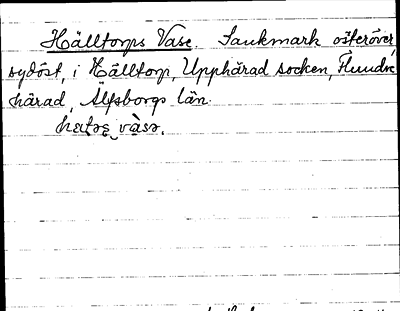 Hälltorps Vase. Sankmark österöver
sydöst, i Hälltorp, Upphärad socken, Flundre
härad, Älfsborgs län.